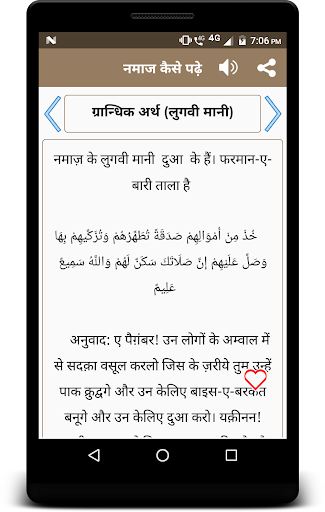 N 4G 4G 7:06 PM
नमाज कैसे पढ़े
ग्रान्धिक अर्थ (लुगवी मानी)
नमाज़ के लुगवी मानी दुआ के हैं। फरमान-ए-
बारी ताला है
خُذْ مِنْ أَمْوَالِهِمْ صَدَقَةً تُطَهِّرُهُمْ وَتُزَكِّيهِمْ بِهَا
وَصَلِّ عَلَيْهِمْ إِنَّ صَلَاتَكَ سَكَنٌ لَهُمْ وَاللَّهُ سَمِيعٌ
عَلِيمٌ
अनुवाद: ए पैग़ंबर! उन लोगों के अम्वाल में
से सदक़ा वसूल करलो जिस के ज़रीये तुम उन्हें
पाक क्रुद्वगे और उन केलिए बाइस-ए-बरकत
बनूगे और उन केलिए दुआ करो। यक़ीनन!